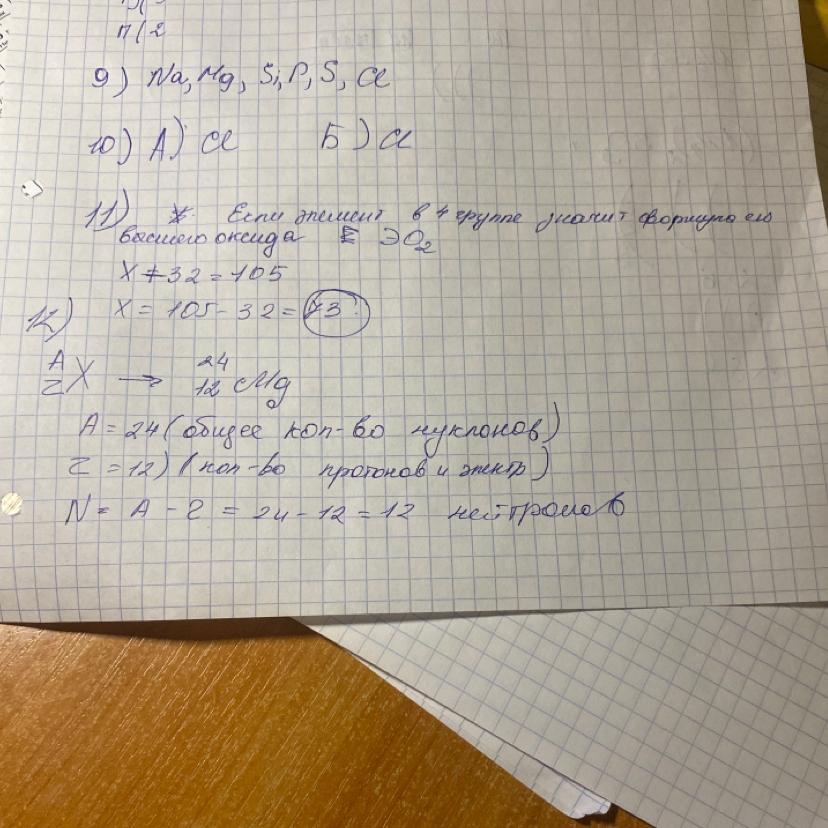 п/2
9) Na, Mg, Si, P, S, Cl
10) А) Cl Б) Cl
11) Если элемент в 4 группе значит формула его
высшего оксида ЭO₂
X + 32 = 105
12) X = 105 - 32 = 73
A Z X → 24 12 Mg
A = 24 (общее кол-во нуклонов)
Z = 12) (кол-во протонов и электр)
N = A - Z = 24 - 12 = 12 нейтронов